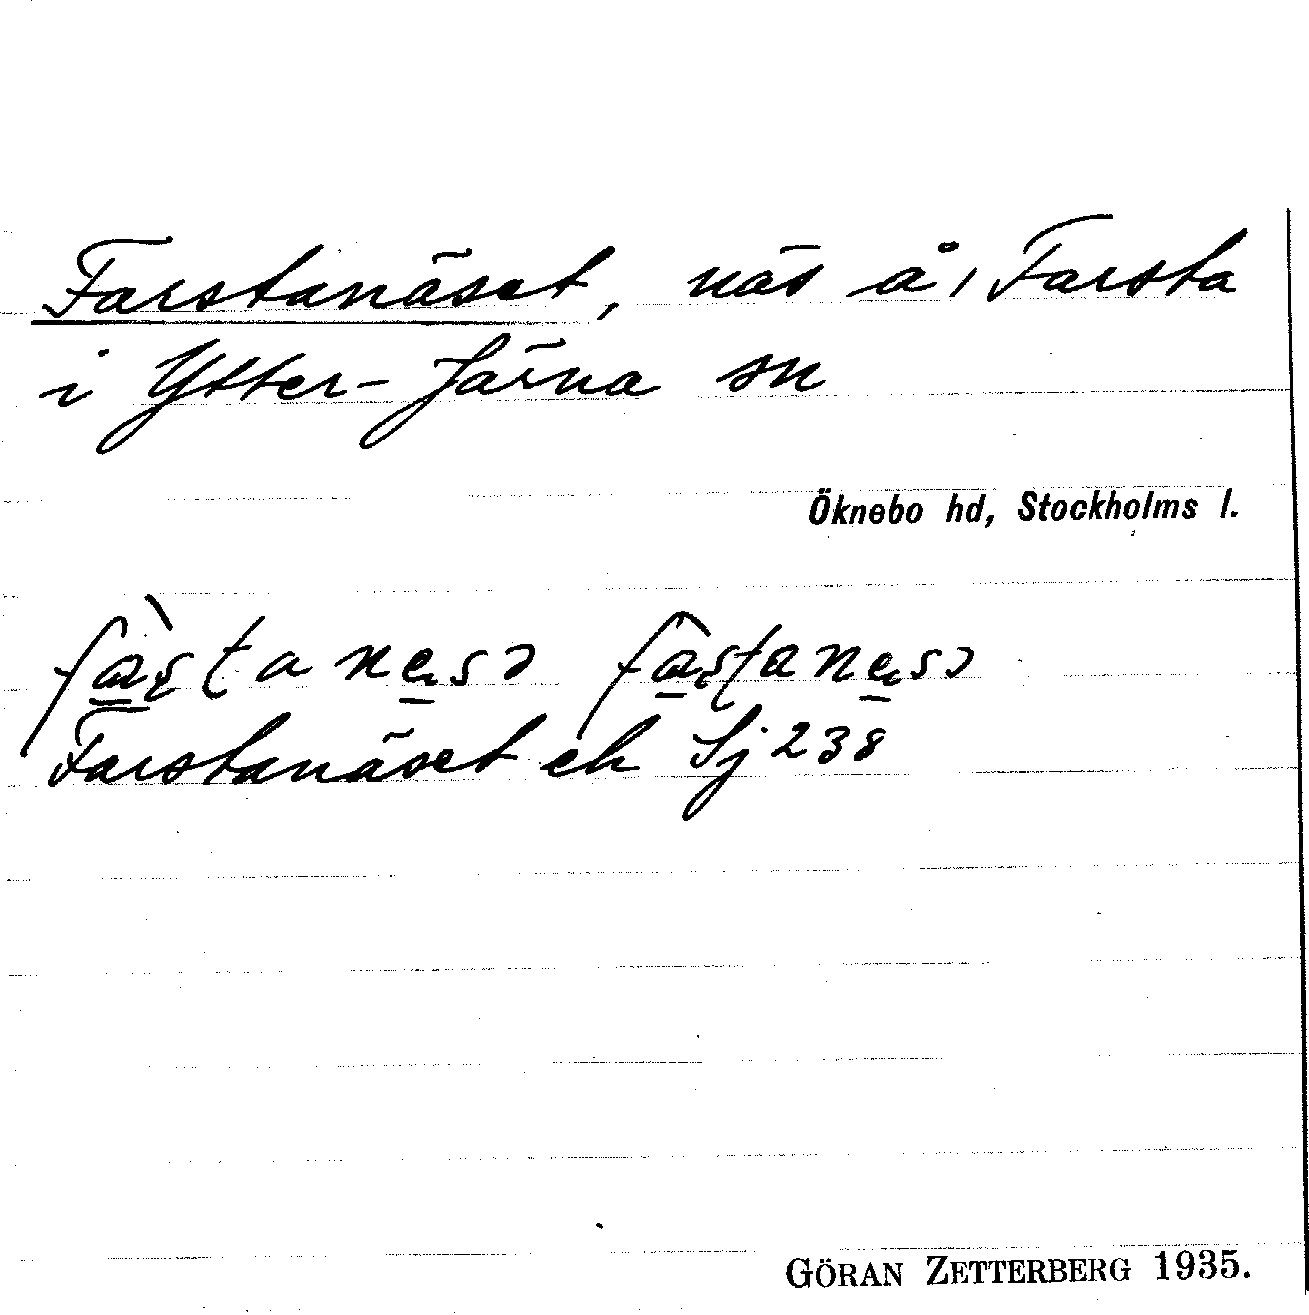 Farstanäset, näs å 1 Farsta
i Ytter-Järna sn
Öknebo hd, Stockholms l.
Farstanäset ek Sj 238
GÖRAN ZETTERBERG 1935.